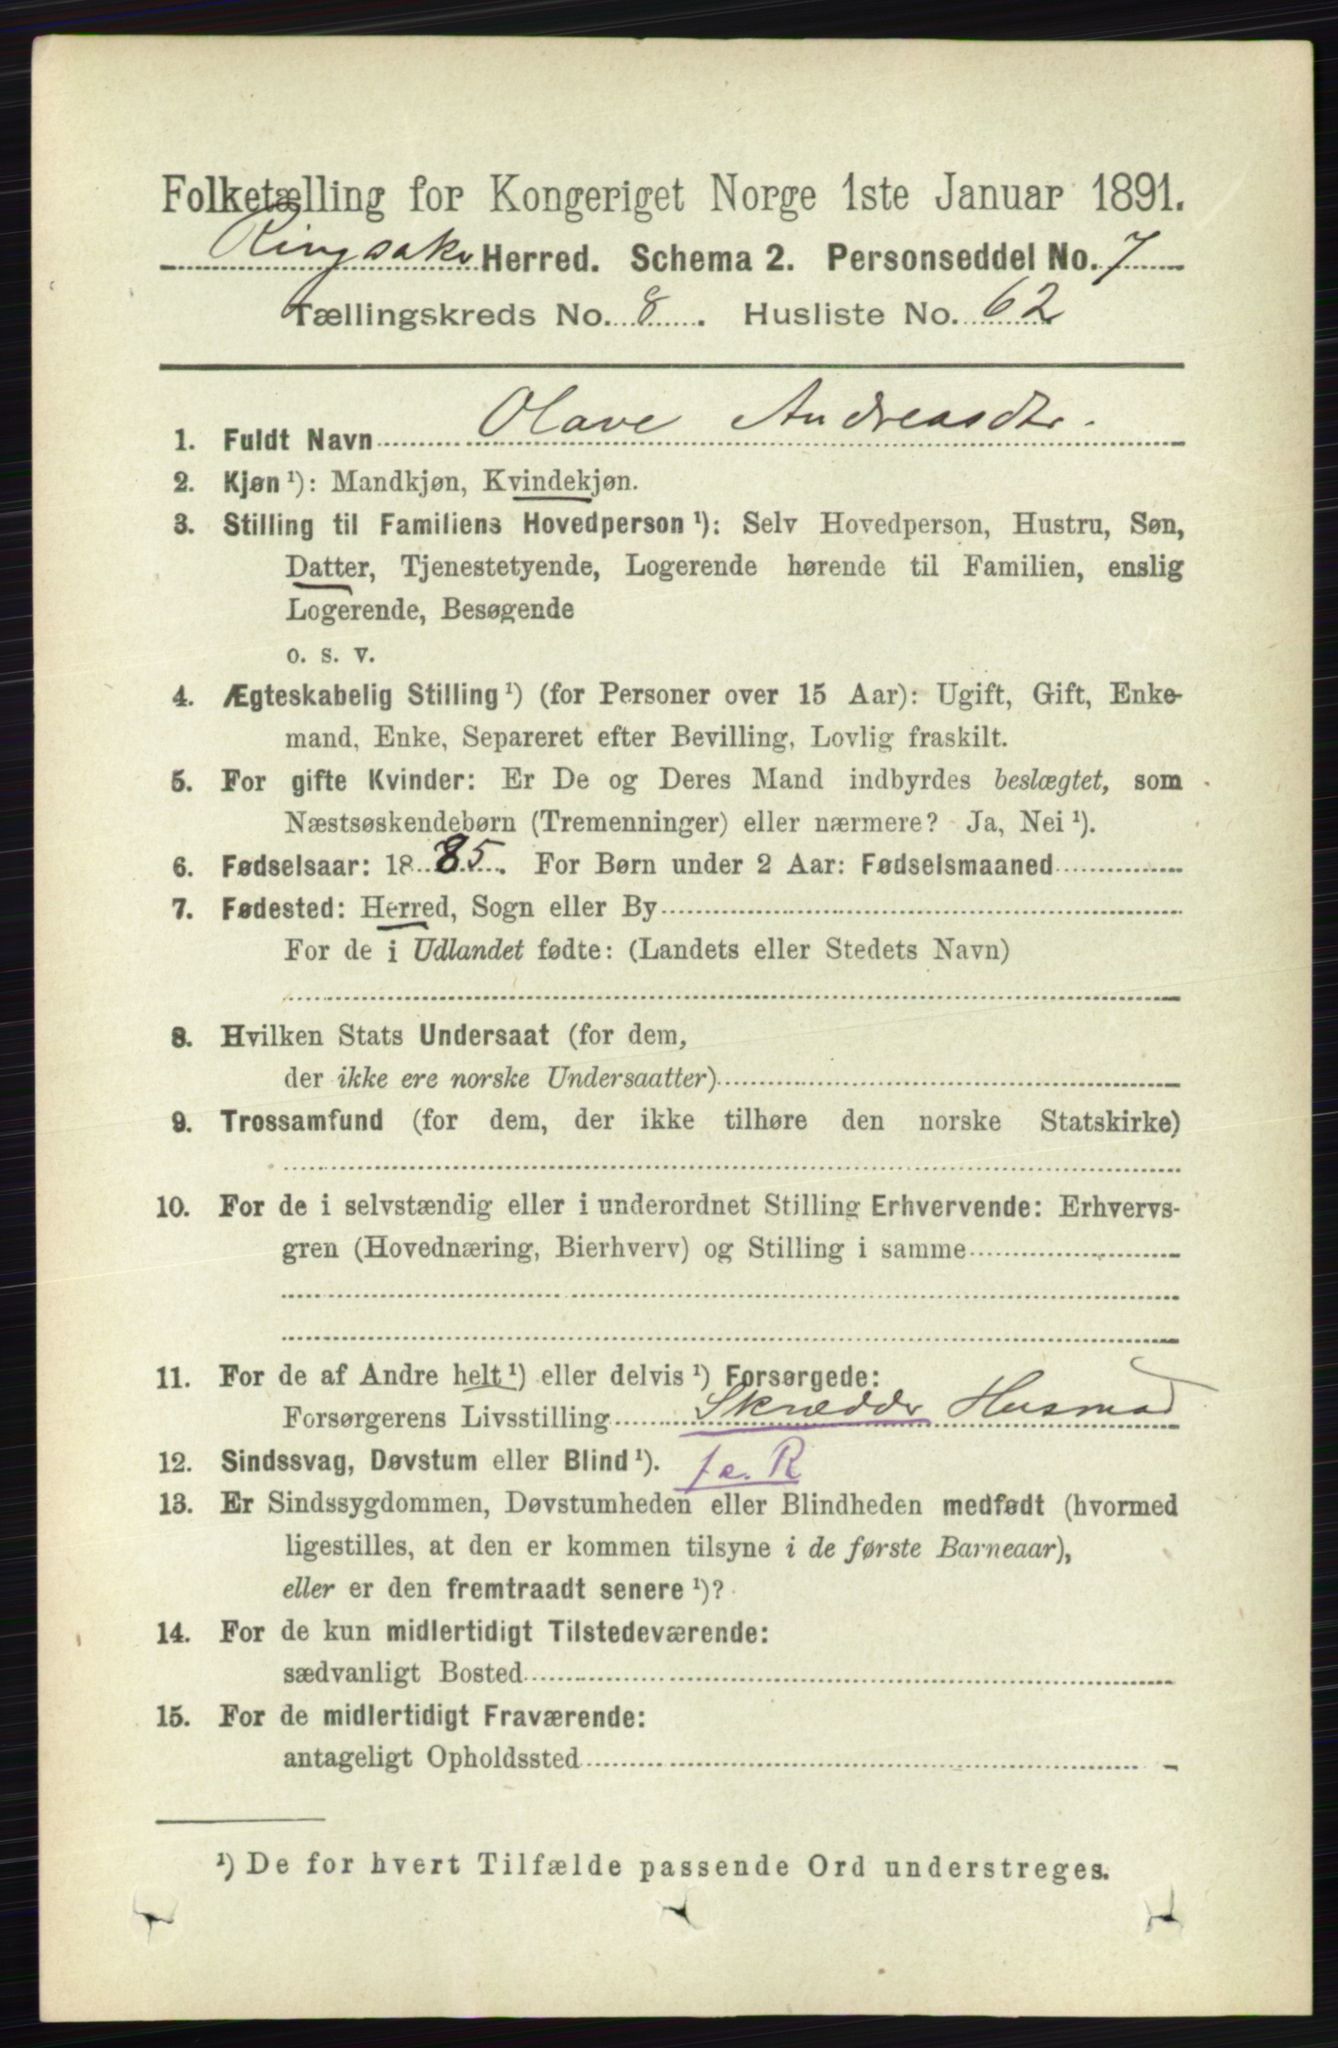 Folketælling for Kongeriget Norge 1ste Januar 1891.
Ringsaker Herred. Schema 2. Personseddel No. 7
Tællingskreds No. 8. Husliste No. 62
1. Fuldt Navn Olave Andreasdtr.
2. Kjøn ¹): Mandkjøn, Kvindekjøn.
3. Stilling til Familiens Hovedperson ¹): Selv Hovedperson, Hustru, Søn,
Datter, Tjenestetyende, Logerende hørende til Familien, enslig
Logerende, Besøgende
o. s. v.
4. Ægteskabelig Stilling ¹) (for Personer over 15 Aar): Ugift, Gift, Enke-
mand, Enke, Separeret efter Bevilling, Lovlig fraskilt.
5. For gifte Kvinder: Er De og Deres Mand indbyrdes beslægtet, som
Næstsøskendebørn (Tremenninger) eller nærmere? Ja, Nei ¹).
6. Fødselsaar: 1885. For Børn under 2 Aar: Fødselsmaaned
7. Fødested: Herred, Sogn eller By
For de i Udlandet fødte: (Landets eller Stedets Navn)
8. Hvilken Stats Undersaat (for dem,
der ikke ere norske Undersaatter)
9. Trossamfund (for dem, der ikke tilhøre den norske Statskirke)
10. For de i selvstændig eller i underordnet Stilling Erhvervende: Erhvervs-
gren (Hovednæring, Bierhverv) og Stilling i samme
11. For de af Andre helt ¹) eller delvis ¹) Forsørgede:
Forsørgerens Livsstilling Skrædder Husmad
12. Sindssvag, Døvstum eller Blind ¹). f æ. R
13. Er Sindssygdommen, Døvstumheden eller Blindheden medfødt (hvormed
ligestilles, at den er kommen tilsyne i de første Barneaar),
eller er den fremtraadt senere ¹)?
14. For de kun midlertidigt Tilstedeværende:
sædvanligt Bosted
15. For de midlertidigt Fraværende:
antageligt Opholdssted
¹) De for hvert Tilfælde passende Ord understreges.